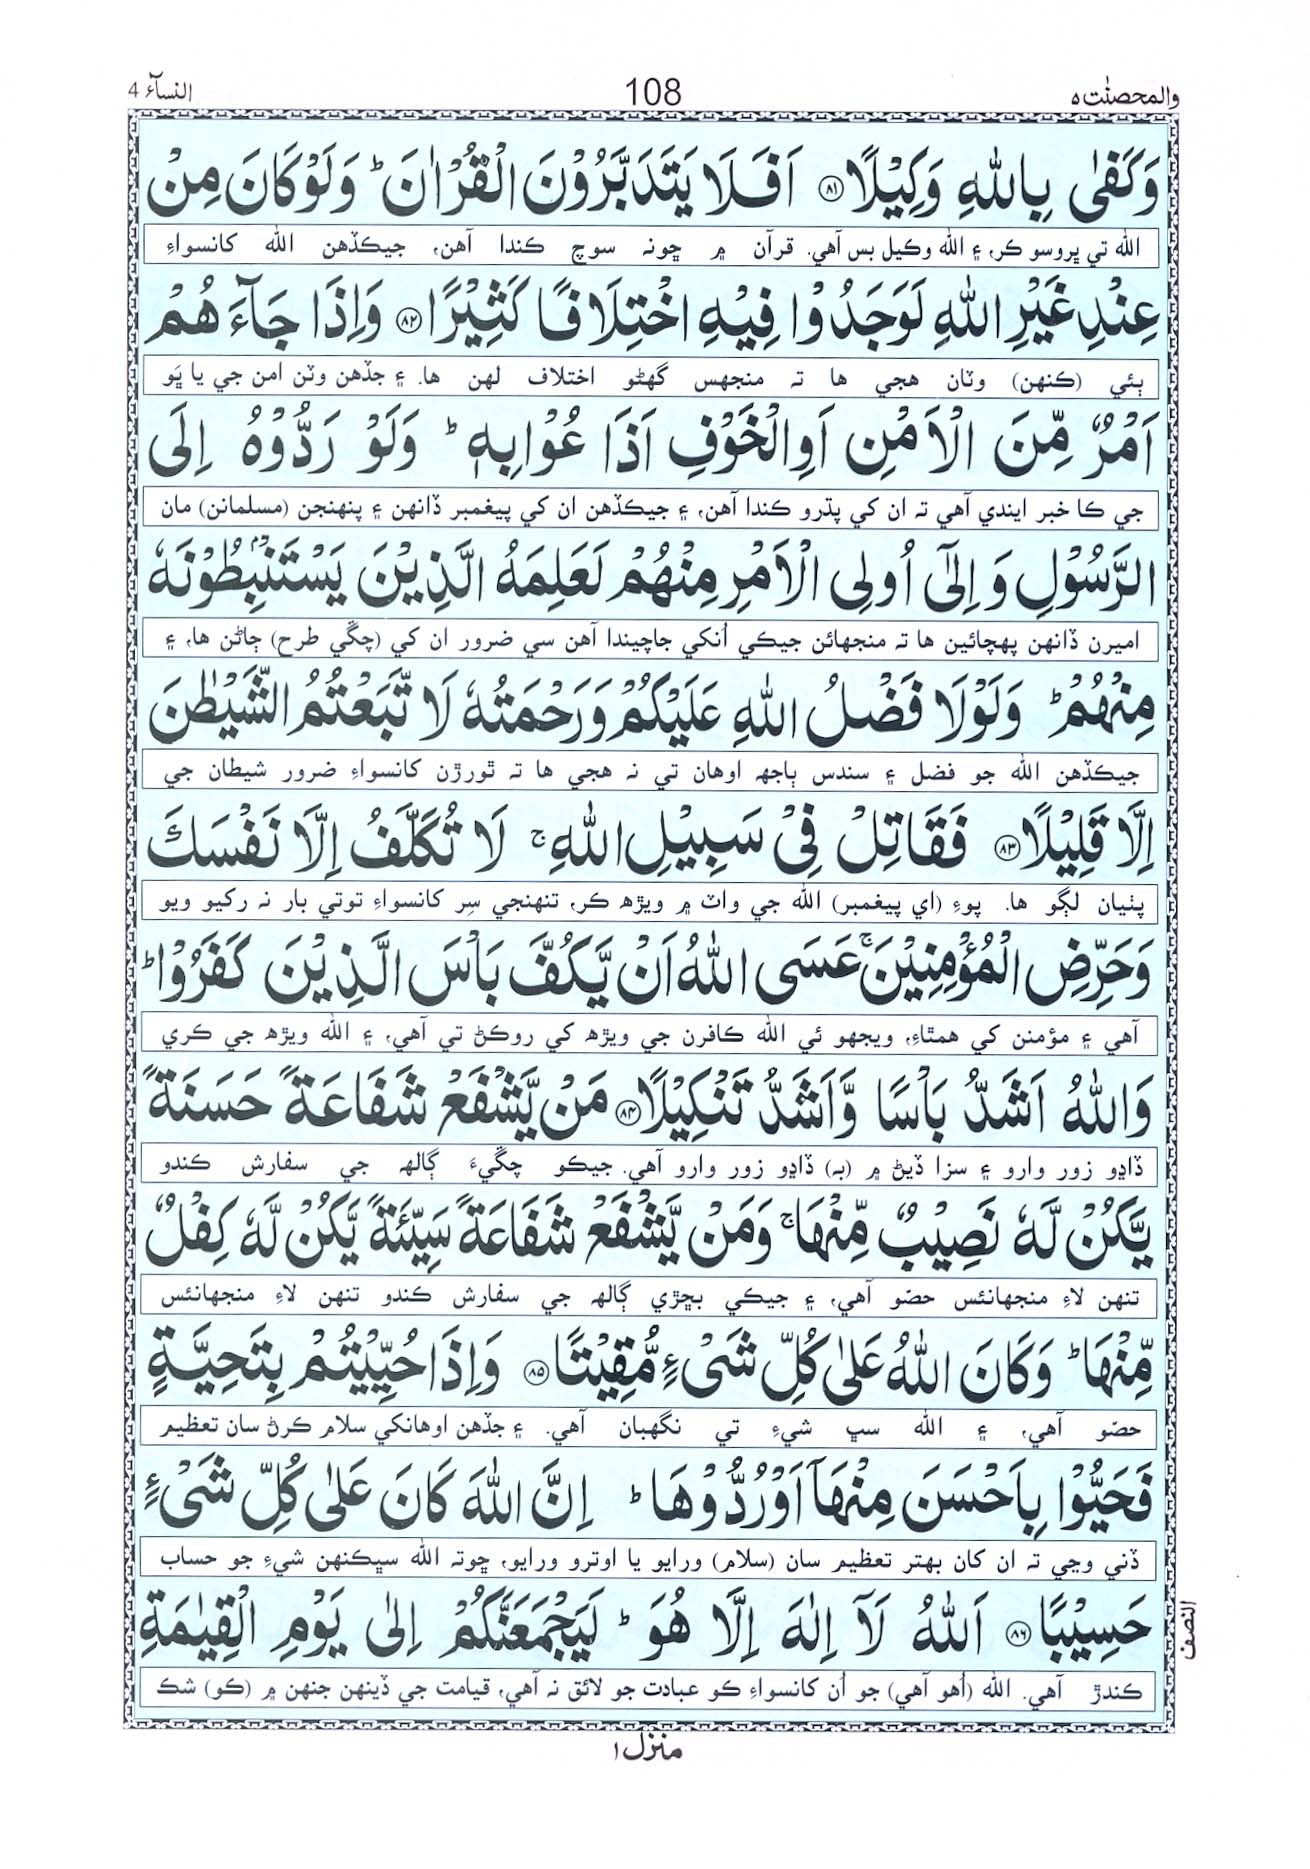 والمحصنٰت ٥
108
النسآء 4
وَكَفٰى بِاللّٰهِ وَكِيْلًا ۝٨١ اَفَلَا يَتَدَبَّرُوْنَ الْقُرْاٰنَ ؕ وَلَوْ كَانَ مِنْ
الله تي ڀروسو ڪر، ۽ الله وڪيل بس آهي. قرآن ۾ ڇونہ سوچ ڪندا آهن، جيڪڏهن الله کانسواءِ
عِنْدِ غَيْرِ اللّٰهِ لَوَجَدُوْا فِيْهِ اخْتِلَافًا كَثِيْرًا ۝٨٢ وَاِذَا جَآءَهُمْ
ٻئي (ڪنهن) وٽان هجي ها تہ منجهس گهڻو اختلاف لهن ها. ۽ جڏهن وٽن امن جي يا ڀَو
اَمْرٌ مِّنَ الْاَمْنِ اَوِ الْخَوْفِ اَذَاعُوْا بِهٖ ؕ وَلَوْ رَدُّوْهُ اِلَى
جي ڪا خبر ايندي آهي تہ ان کي پڌرو ڪندا آهن، ۽ جيڪڏهن ان کي پيغمبر ڏانهن ۽ پنهنجن (مسلمانن) مان
الرَّسُوْلِ وَاِلٰٓى اُولِى الْاَمْرِ مِنْهُمْ لَعَلِمَهُ الَّذِيْنَ يَسْتَنْۢبِطُوْنَهٗ
اميرن ڏانهن پهچائين ها تہ منجهائن جيڪي اُنکي جاچيندا آهن سي ضرور ان کي (چڱي طرح) ڄاڻن ها، ۽
مِنْهُمْ ؕ وَلَوْلَا فَضْلُ اللّٰهِ عَلَيْكُمْ وَرَحْمَتُهٗ لَا تَّبَعْتُمُ الشَّيْطٰنَ
جيڪڏهن الله جو فضل ۽ سندس ٻاجهہ اوهان تي نہ هجي ها تہ ٿورڙن کانسواءِ ضرور شيطان جي
اِلَّا قَلِيْلًا ۝٨٣ فَقَاتِلْ فِيْ سَبِيْلِ اللّٰهِ ۚ لَا تُكَلَّفُ اِلَّا نَفْسَكَ
پٺيان لڳو ها. پوءِ (اي پيغمبر) الله جي واٽ ۾ ويڙهہ ڪر، تنهنجي سِر کانسواءِ توتي بار نہ رکيو ويو
وَحَرِّضِ الْمُؤْمِنِيْنَ ۚ عَسَى اللّٰهُ اَنْ يَّكُفَّ بَاْسَ الَّذِيْنَ كَفَرُوْا ؕ
آهي ۽ مؤمنن کي همٿاءِ، ويجهو ئي الله ڪافرن جي ويڙهہ کي روڪڻ تي آهي، ۽ الله ويڙهہ جي ڪري
وَاللّٰهُ اَشَدُّ بَاْسًا وَّاَشَدُّ تَنْكِيْلًا ۝٨٤ مَنْ يَّشْفَعْ شَفَاعَةً حَسَنَةً
ڏاڍو زور وارو ۽ سزا ڏيڻ ۾ (بہ) ڏاڍو زور وارو آهي. جيڪو چڱيءَ ڳالهہ جي سفارش ڪندو
يَّكُنْ لَّهٗ نَصِيْبٌ مِّنْهَا ۚ وَمَنْ يَّشْفَعْ شَفَاعَةً سَيِّئَةً يَّكُنْ لَّهٗ كِفْلٌ
تنهن لاءِ منجهانئس حصّو آهي، ۽ جيڪي بڇڙي ڳالهہ جي سفارش ڪندو تنهن لاءِ منجهانئس
مِّنْهَا ؕ وَكَانَ اللّٰهُ عَلٰى كُلِّ شَيْءٍ مُّقِيْتًا ۝٨٥ وَاِذَا حُيِّيْتُمْ بِتَحِيَّةٍ
حصّو آهي، ۽ الله سڀ شيءِ تي نگهبان آهي. ۽ جڏهن اوهانکي سلام ڪرڻ سان تعظيم
فَحَيُّوْا بِاَحْسَنَ مِنْهَآ اَوْ رُدُّوْهَا ؕ اِنَّ اللّٰهَ كَانَ عَلٰى كُلِّ شَيْءٍ
ڏني وڃي تہ ان کان بهتر تعظيم سان (سلام) ورايو يا اوترو ورايو، ڇوتہ الله سڀڪنهن شيءِ جو حساب
حَسِيْبًا ۝٨٦ اَللّٰهُ لَآ اِلٰهَ اِلَّا هُوَ ؕ لَيَجْمَعَنَّكُمْ اِلٰى يَوْمِ الْقِيٰمَةِ
ڪندڙ آهي. الله (اُهو آهي) جو اُن کانسواءِ ڪو عبادت جو لائق نہ آهي، قيامت جي ڏينهن جنهن ۾ (ڪو) شڪ
النصف
منزل ١